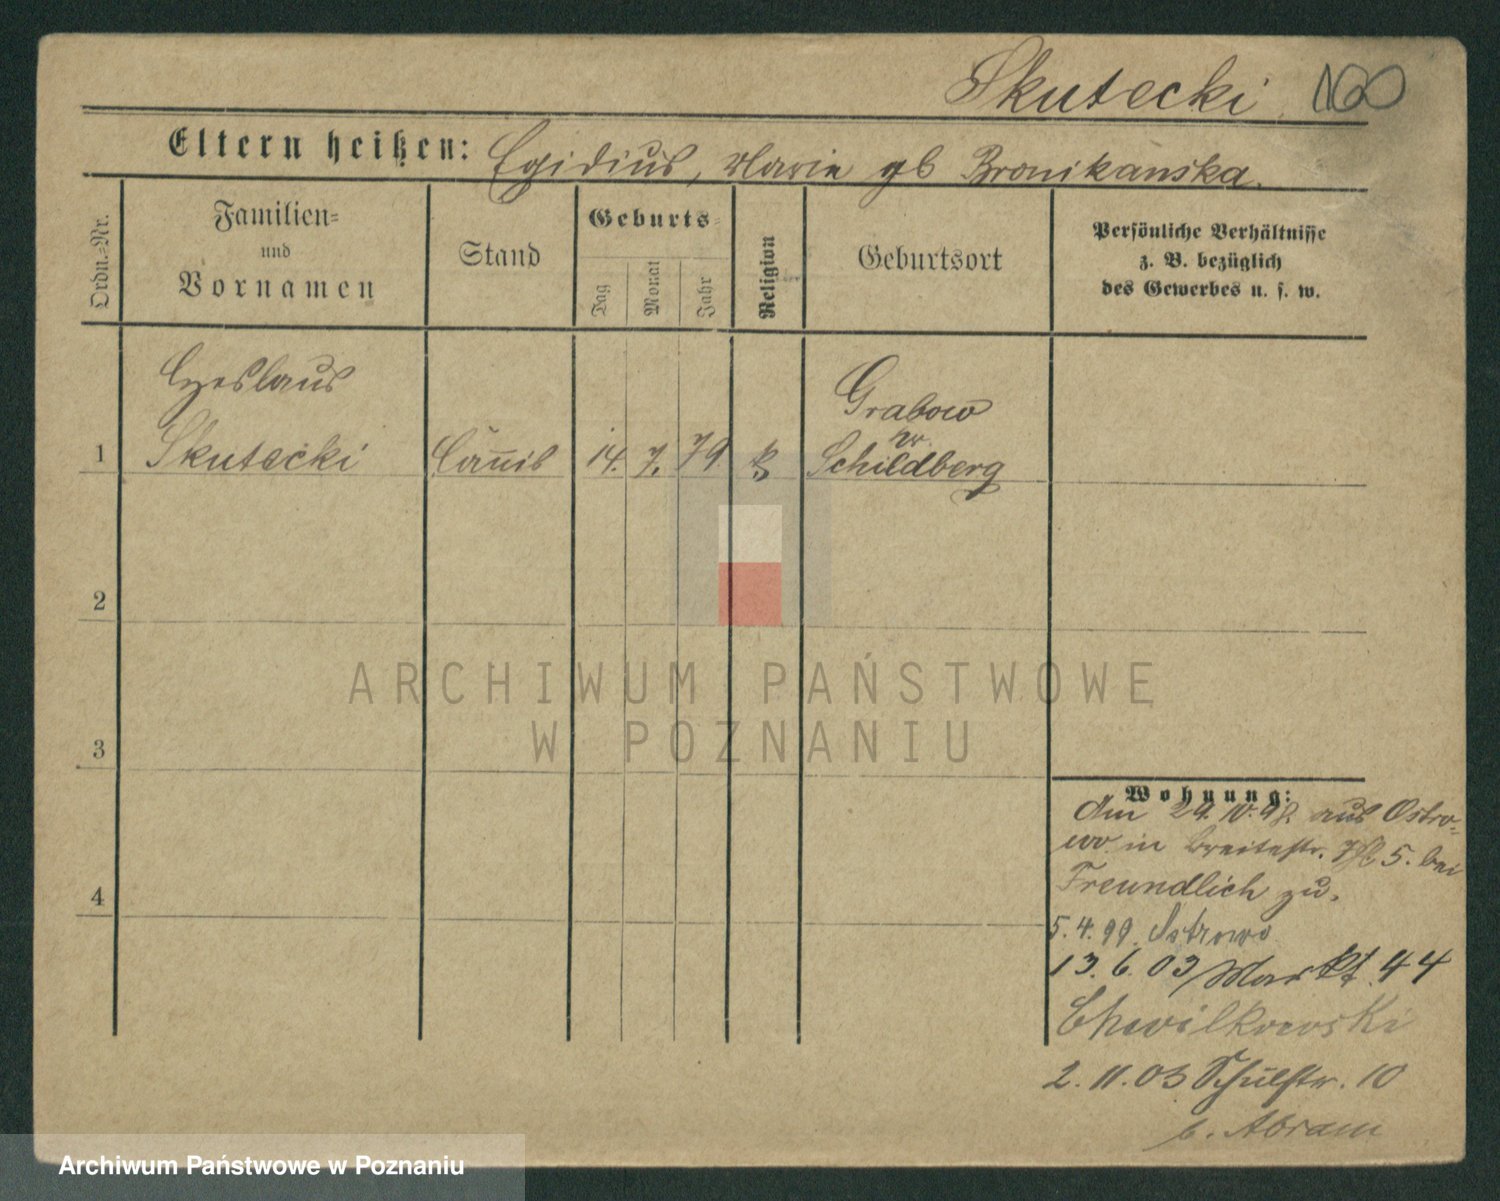 Skutecki 160
Eltern heißen: Egidius, Marie gb Bronikanska.
Ordn.=Nr.
Familien=
und
Vornamen
Stand
Geburts=
Tag
Monat
Jahr
Religion
Geburtsort
Persönliche Verhältnisse
z. B. bezüglich
des Gewerbes u. s. w.
Czeslaus
Grabow
1 Skutecki 14. 7. 79. Schildberg
2
3
4
ARCHIWUM PAŃSTWOWE
W POZNANIU
Wohnung:
Am 29. 10. 98. aus Ostro-
wo in Breitestr. № 5. bei
Freundlich zu.
5. 4. 99. Ostrowo
13. 6. 03 Markt 44
Chwilkowski
2. 11. 03 Schulstr. 10
b. Abram
Archiwum Państwowe w Poznaniu